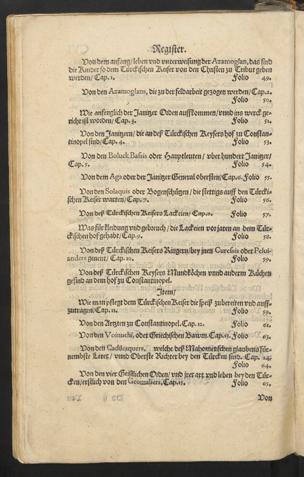 Register.
Von dem anfang/ leben vnd vnterweisung der Aramoglan, das sind
die Kinder so dem Türckischen Keiser von den Christen zu Tribut geben
werden/ Cap. 1. Folio 49.
Von den Aramoglans, die zu der feldarbeit gezogen werden/ Cap. 2.
Folio 50.
Wie anfenglich der Janitzer Orden auffkommen/ vnnd
richt ist worden/ Cap. 3.
Von den Janitzern/ die an deß Türckischen Keysers hof zu Constan-
tinopel sind/ Cap. 4. Folio 53.
Von den Boluck Bassis oder Hauptleuten/ vber hundert Janitzer/
Cap. 5. Folio 54.
Von dem Aga oder der Janitzer General obersten/ Cap. 6. Folio 55.
Von den Solaquis oder Bogenschützen/ die stettigs auff den Türcki-
schen Keiser warten/ Cap. 7. Folio 56.
Von deß Türckischen Keisers Lackeien/ Cap. 8. Folio 57.
Was für kleidung vnd gebreuch/ die Lackeien vor jaren an dem Tür-
ckischen hof gehabt/ Cap. 9. Folio 58.
Von deß Türckischen Keisers Ringern/ bey jnen
genent/ Cap. 10. Folio
Von deß Türckischen Keysers Mundköchen vnnd andern Köchen
gesind an dem hof zu Constantinopel.
Item/
Wie man pflegt dem Türckischen Keiser die speiß zubereiten vnd auff-
zutragen/ Cap. 11. Folio
Von den Artzten zu Constantinopel. Cap. 12. Folio
Von den oder Griechischen Cap. 13. Folio
Von den welche deß Mahometischen glaubens für-
nembste Lerer/ vnnd Oberste Richter bey den Türcken sind. Cap. 14.
Folio 64.
Von den vier Geistlichen Orden/ vnd jrer art vnd leben bey den Tür-
cken/ erstlich von den Cap. 15. Folio 65.
Von